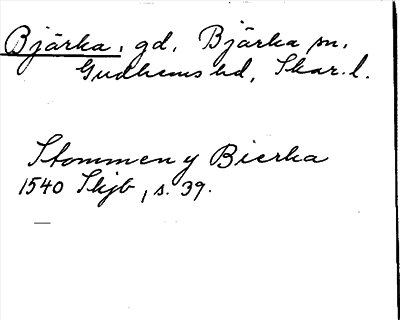 Bjärka, gd, Bjärka sn,
Gudhems hd, Skar. l.
Stommen y Bierka
1540 Skjb, s. 39.